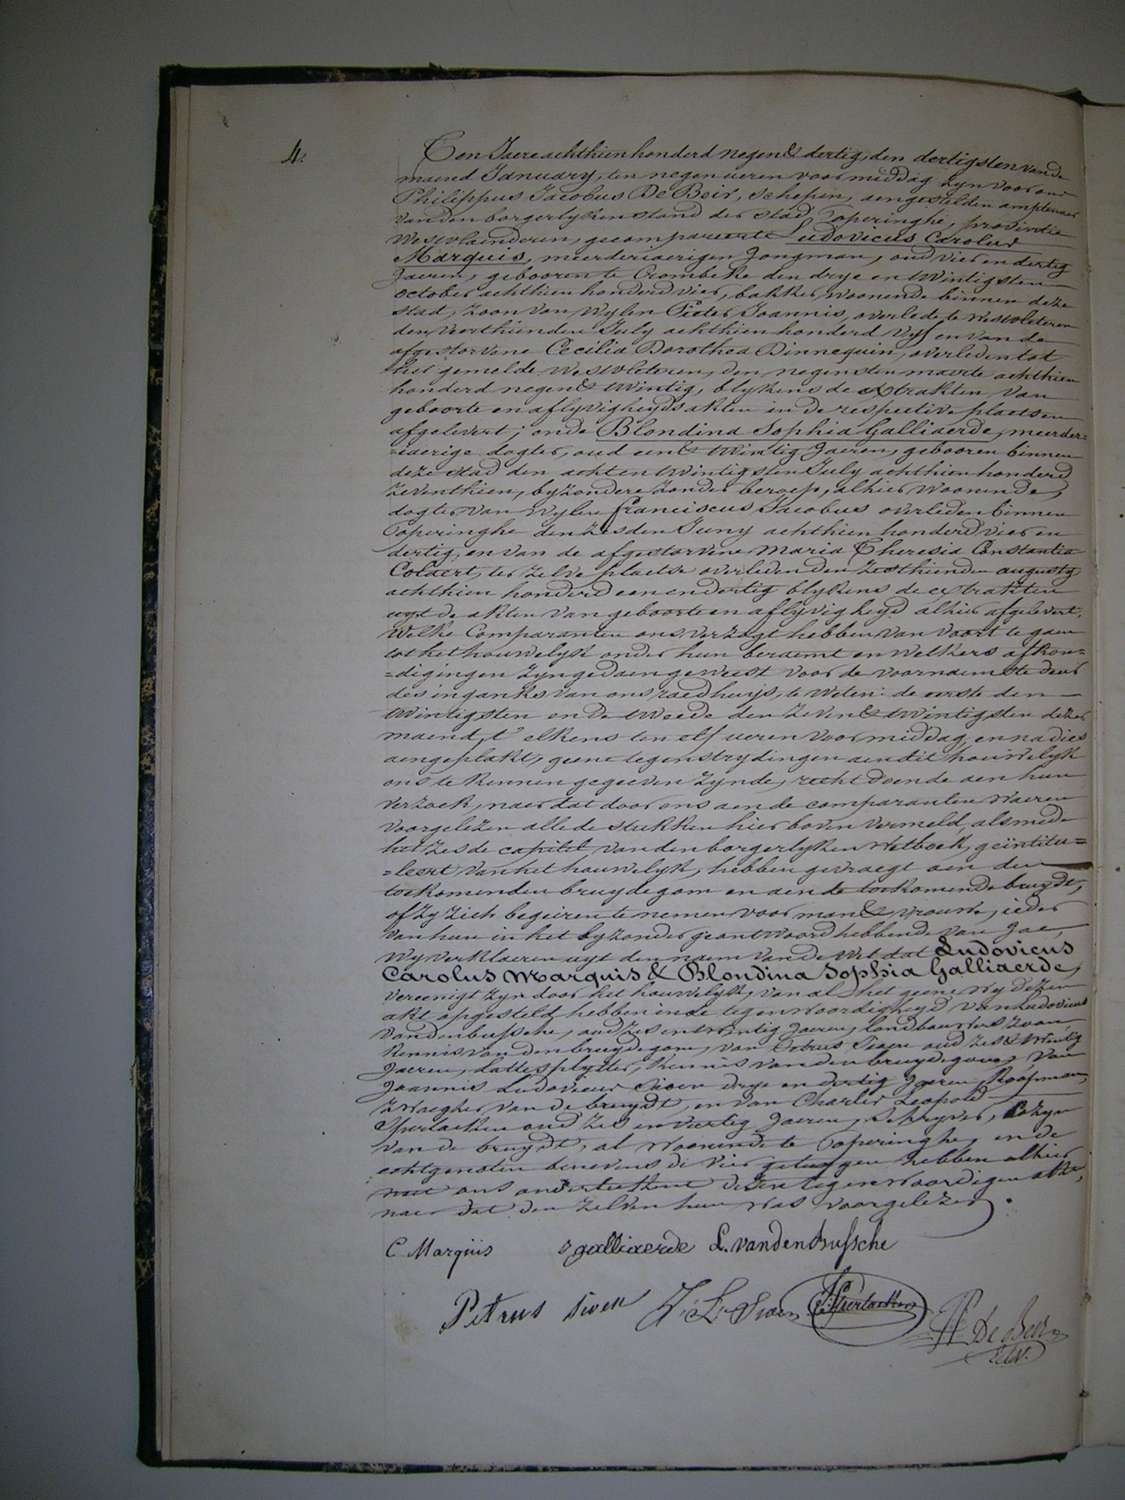 4.
Ten Jaere achthien honderd negen & dertig, den dertigsten van de
maend January, ten negen ueren voor middag zyn voor ons
Philippus Jacobus De Beir, schepen, aengestelden amptenaer
van den borgerlyken stand der stad Poperinghe, provintie
Westvlaenderen, gecompareert Ludovicus Carolus
Marquis, meerderiaerigen Jongman, oud vier en dertig
Jaeren, gebooren te Crombeke den drye en twintigsten
october achthien honderd vier, bakker, woonende binnen deze
stad, zoon van wylen Pieter Joannis, overlede te Westvleteren
den veerthienden July achthien honderd vyf en van de
afgestorvene Cecilia Dorothea Binnequin, overleden tot
het gemelde Westvleteren, den negensten maerte achthien
honderd negen & twintig, blykens de extrakten van
geboorte en aflyvigheyds akten in de respective plaetsen
afgelevert; ende Blondina Sophia Galliaerde, meerder=
=iaerige dogter, oud een & twintig Jaeren, gebooren binnen
deze stad den acht en twintigsten July achthien honderd
zeventhien, byzondere zonder beroep, alhier woonende,
dogter van wylen Franciscus Jacobus overleden binnen
Poperinghe den zesden Juny achthien honderd vier en
dertig, en van de afgestorvene Maria Theresia Constantia
Colaert, ter zelve plaetse overleden den zesthienden augusty
achthien honderd een en dertig blykens de extrakten
uyt de akten van geboorte en aflyvigheyd alhier afgelevert.
Welke Comparanten ons verzogt hebben van voort te gaen
tot het houwelyk onder hun beraemt en welkers afkon=
=digingen zyn gedaen geweest voor de voornaemste deur
des inganks van ons raedhuys, te weten: de eerste den
twintigsten en de tweede den zeven & twintigsten dezer
maend, t' elkens ten elf ueren voor middag, en na dies
aengeplakt, geene tegenstrydingen aen dit houwelyk
ons te kennen gegeeven zynde, recht doende aen hun
verzoek, naer dat door ons aen de comparanten waeren
voorgelezen alle de stukken hier boven vermeld, alsmede
het zesde capittel van den borgerlyken wetboek, geïntitu=
=leert van het houwelyk, hebben gevraegt aen den
toekomenden bruydegom en aen de toekomende bruydt,
of zy zich begeiren te nemen voor man & vrouwe, ieder
van hun in het byzonder geantwoord hebbende van Jae,
wy verklaeren uyt den naem van de Wet dat Ludovicus
Carolus Marquis & Blondina Sophia Galliaerde,
vereenigt zyn door het houwelyk, van al het geene wy dezen
akt opgesteld hebben in de tegenwoordigheyd van Ludovicus
Vandenbussche, oud zes en twintig Jaeren, landbouwers zoon,
kennis van den bruydegom, van Petrus Sioen oud zes & twintig
Jaeren, lattesplyter, kennis van den bruydegom, van
Joannis Ludovicus Sioen drye en dertig Jaeren, Koopman,
zwaegher van de bruydt, en van Charles Leopold
Sperlacken oud zes en veertig Jaeren, schryver, Cozyn
van de bruydt, al woonende te Poperinghe, en de
echtgenoten benevens de vier getuygen hebben alhier
met ons onderteekent dezen tegenwoordigen akte,
naer dat den zelven hun was voorgelezen.
C. Marqüis s galliaerde L. vandenbussche
Petrus sioen J. L. Sioen Sperlacken
P De Beir